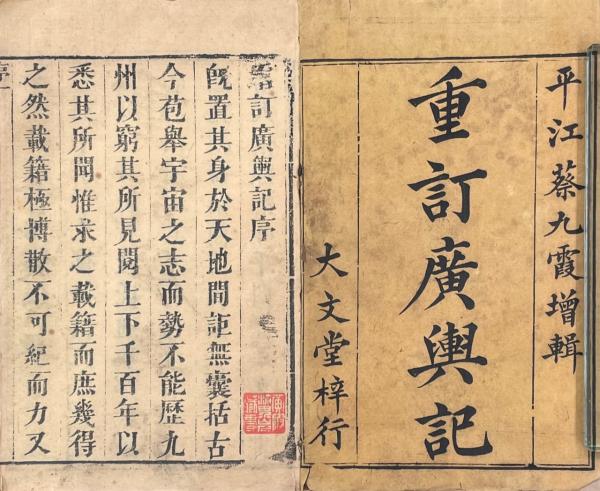 平江蔡九霞增輯
重訂廣輿記
大文堂梓行
訂廣輿記序
旣置其身於天地間詎無囊括古
今苞舉宇宙之志而勢不能歷九
州以窮其所見閱上下千百年以
悉其所聞惟求之載籍而庶幾得
之然載籍極博散不可紀而力又
序
一